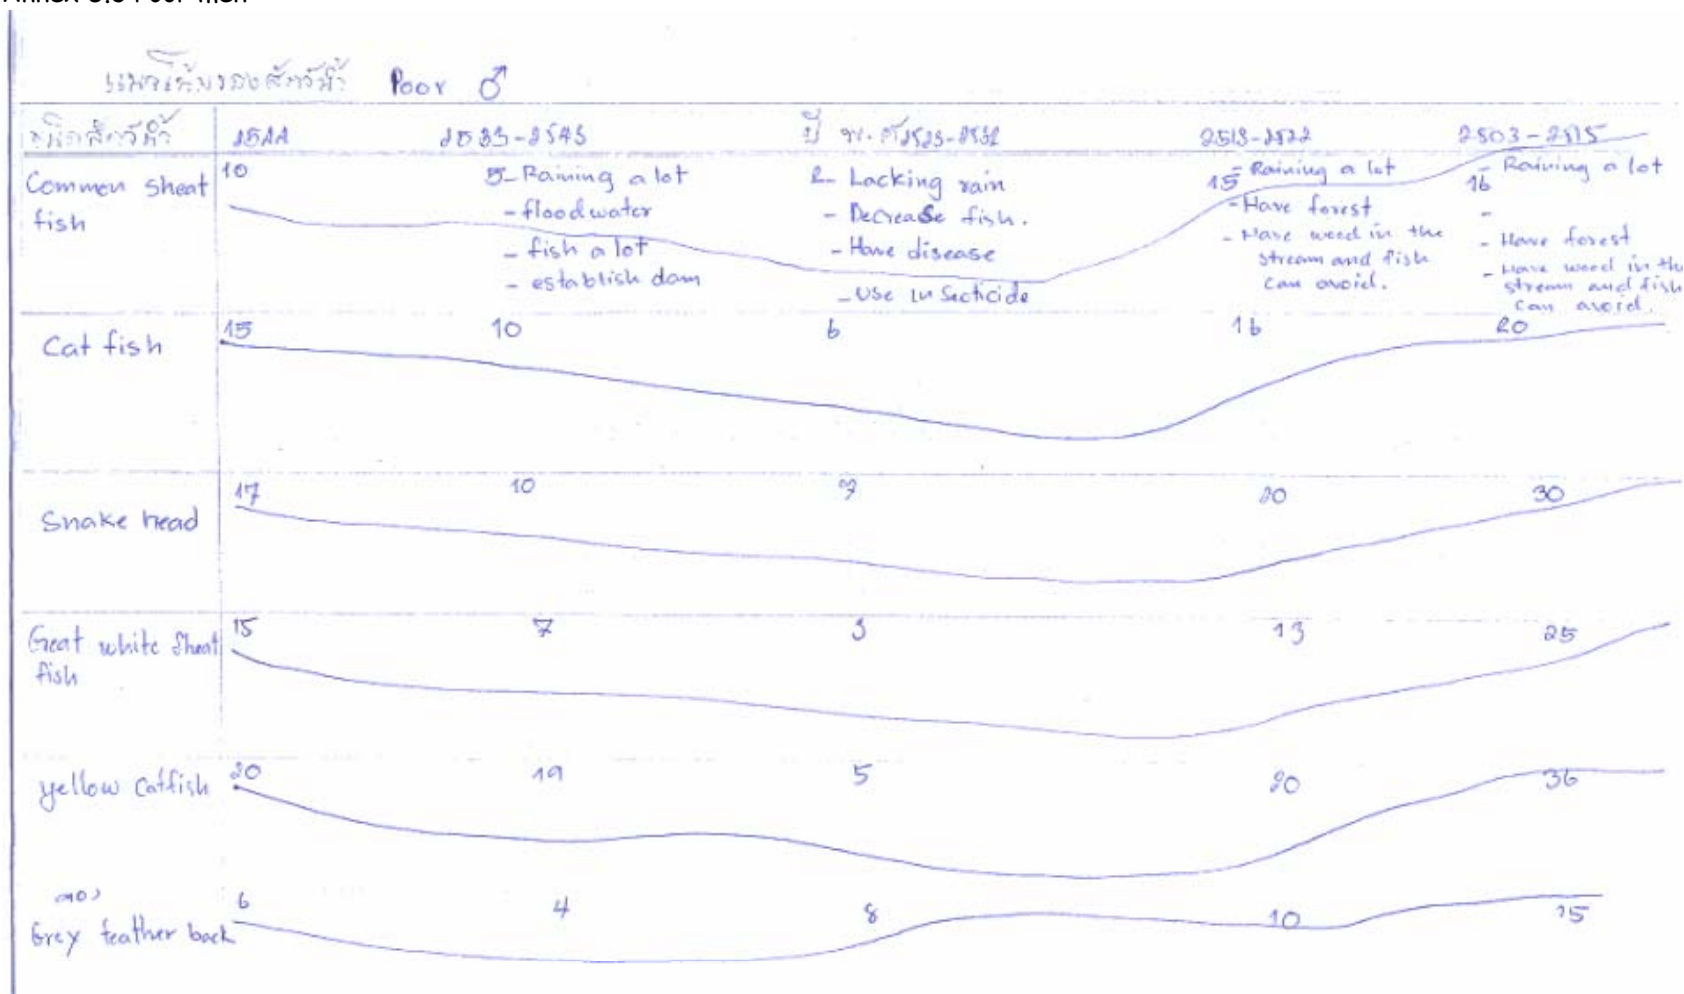 Poor ♂
ชนิดสัตว์น้ำ 2544 2533-2543 ปี พ.ศ. 2523-2532 2513-2522 2503-2515
Common sheat fish
10
5 - Raining a lot
- flood water
- fish a lot
- establish dam
2 - Lacking rain
- Decrease fish.
- Have disease
- Use insecticide
15 - Raining a lot
- Have forest
- Have weed in the
stream and fish
can avoid.
16 - Raining a lot
-
- Have forest
- Have weed in the
stream and fish
can avoid.
Cat fish 15 10 6 16 20
Snake head 17 10 7 20 30
Great white Sheat fish 15 7 3 13 25
yellow Catfish 20 19 5 20 36
Grey feather back 6 4 8 10 15